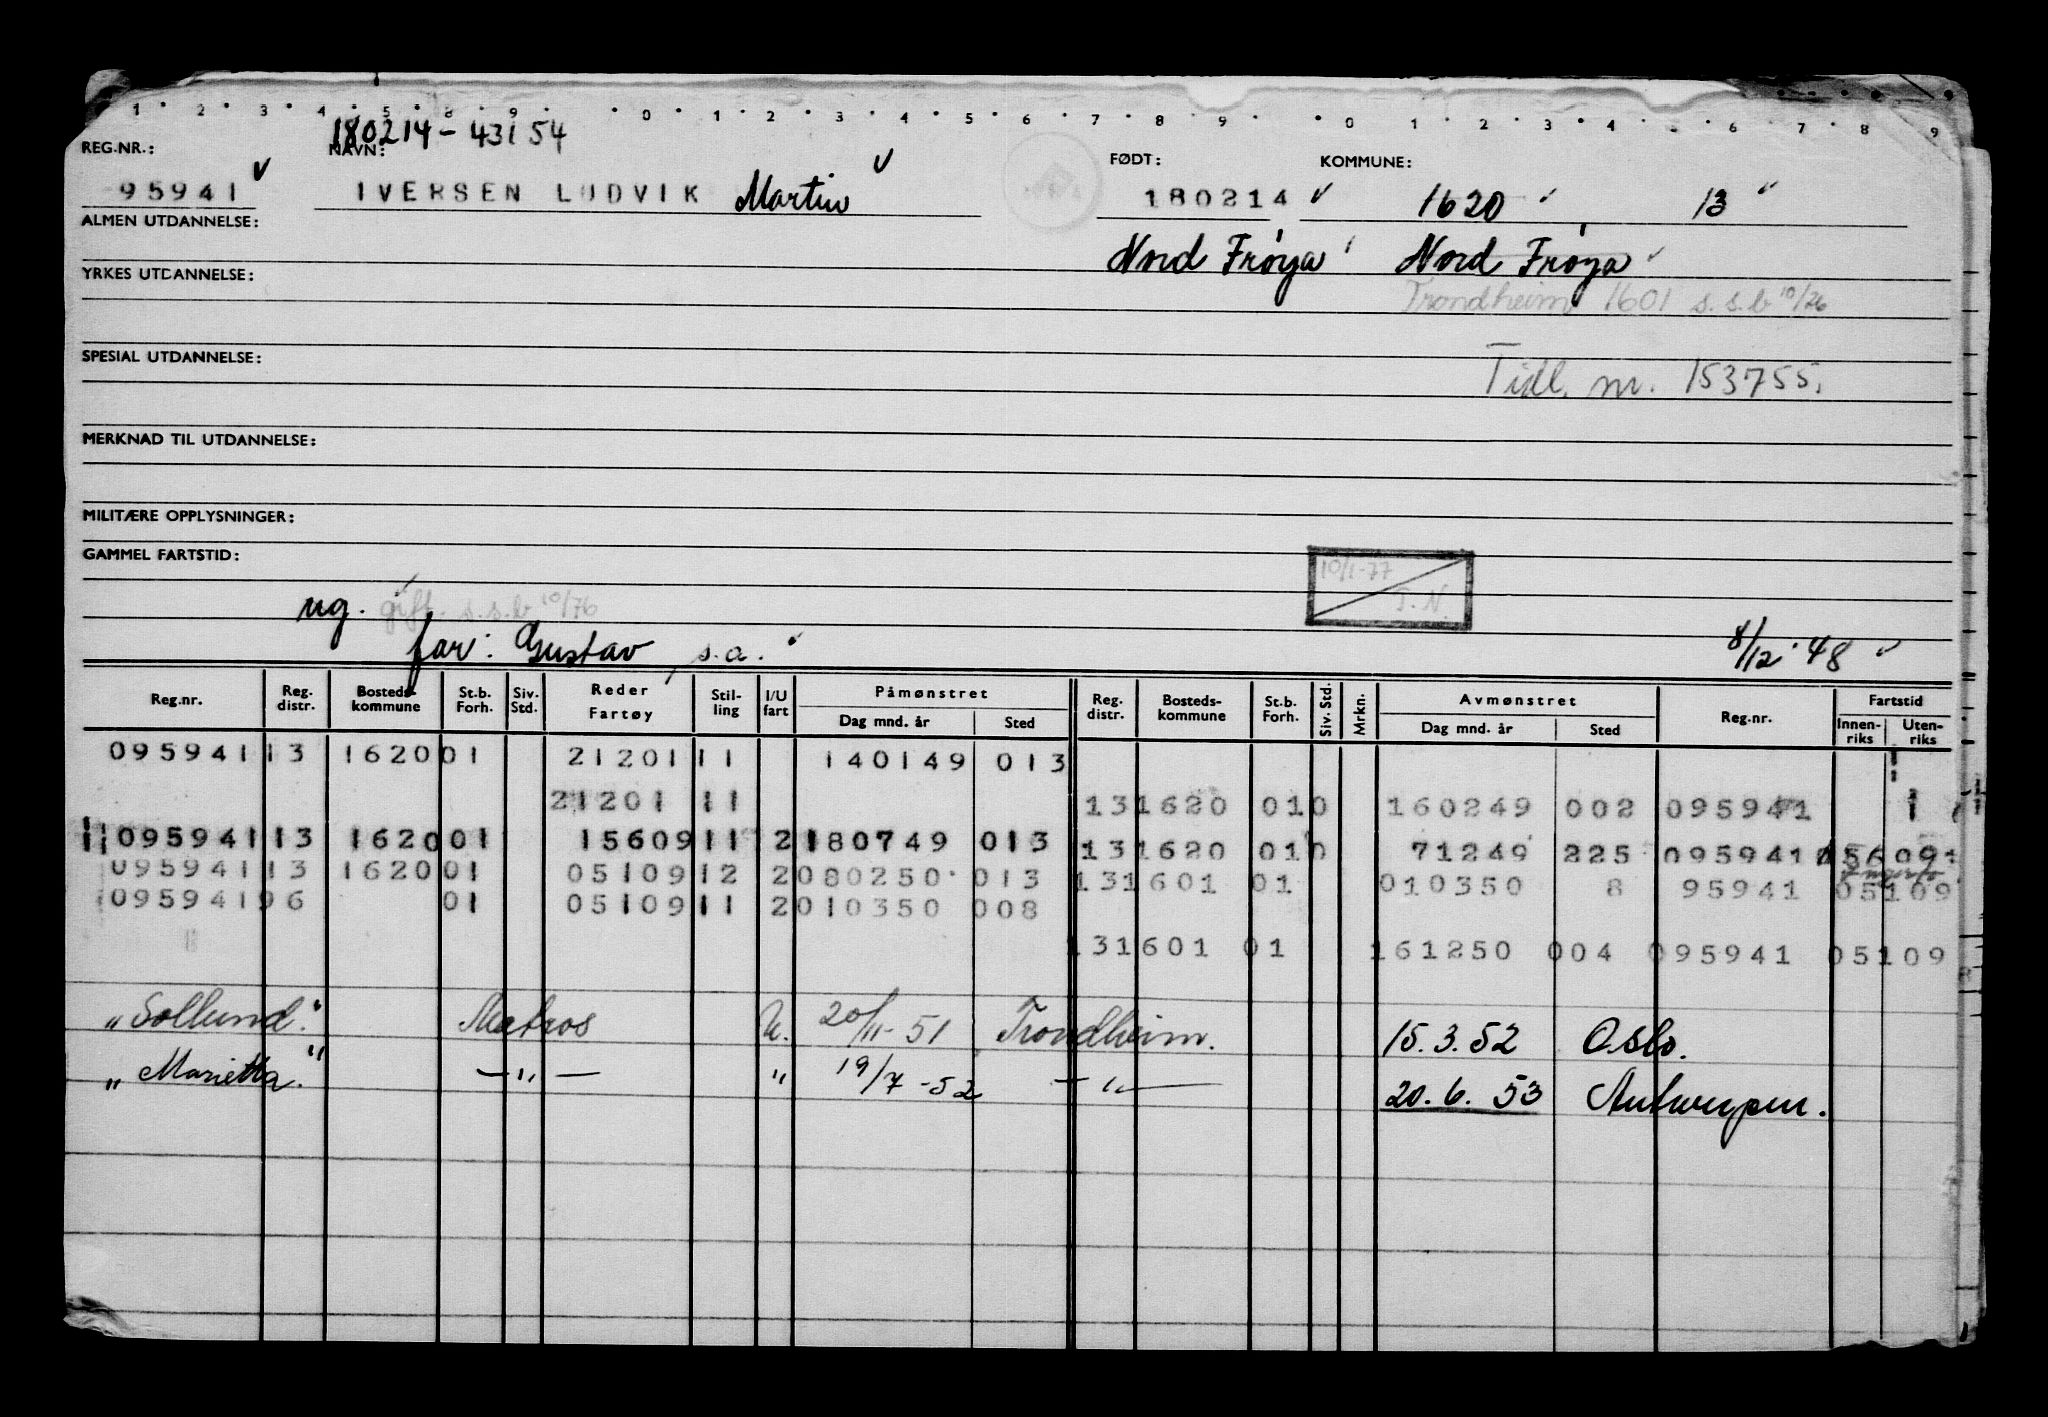 1 2 3 4 5 8 9 0 1 2 3 4 5 6 7 8 9 0 1 2 3 4 5 6 7 8 9
180214-43154
REG.NR.: NAVN: FØDT: KOMMUNE:
95941 IVERSEN LUDVIK Martin 180214 1620 13
ALMEN UTDANNELSE:
Nord Frøya Nord Frøya
YRKES UTDANNELSE:
Trondheim 1601 s.s.b 10/26
SPESIAL UTDANNELSE:
Tidl. nr. 153755.
MERKNAD TIL UTDANNELSE:
MILITÆRE OPPLYSNINGER:
GAMMEL FARTSTID:
10/1-77
T.N.
ug. gift. s.s.b 10/76
far: Gustav, s.a. 8/12 48
Reg.nr. Reg. distr. Bosteds- kommune St.b. Forh. Siv. Std. Reder Fartøy Stil- ling I/U fart Påmønstret Dag mnd. år Sted Reg. distr. Bosteds- kommune St.b. Forh. Siv. Std. Mrkn. Avmønstret Dag mnd. år Sted Reg.nr. Fartstid Innen- riks Uten- riks
095941 13 1620 01 21201 11 140149 013
21201 11 13 1620 010 160249 002 095941
095941 13 1620 01 15609 11 2 180749 013 13 1620 010 71249 225 095941
095941 13 1620 01 05109 12 2 080250 013 13 1601 01 010350 8 95941 05109
095941 96 01 05109 11 2 010350 008
13 1601 01 161250 004 095941 05109
"Sollund." Matros U. 20/11-51 Trondheim. 15.3.52 Oslo.
"Marietta." -"- " 19/7-52 -"- 20.6.53 Antwerpen.